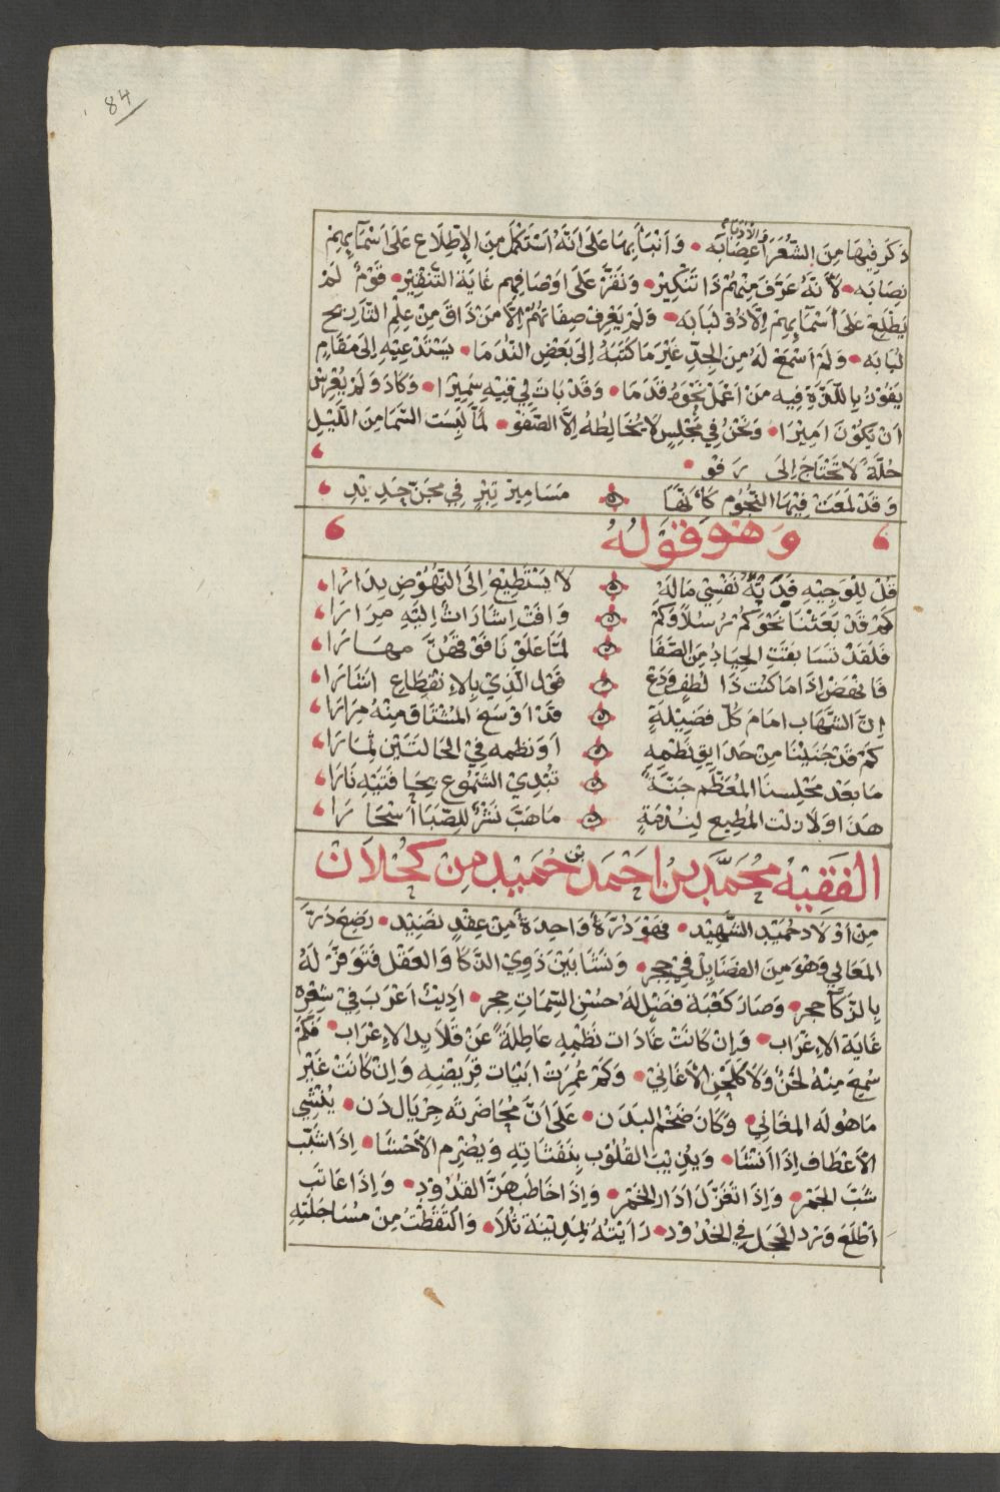 84
والأدباء
ذَكَرَ فِيْهَا مِنَ الشُّعَرَاءِ عِصَابَه • وَاَنْبَأَ بِهَا عَلَىٰ اَنَّهُ اسْتَكْمَلَ مِنَ الاِطِّلَاعِ عَلَىٰ اَسْمَآئِهِمْ
نِصَابَه • لأَنَّهُ عَرَّفَ مِنْهُمْ ذَا تَنْكِيْر • وَنَقَّرَ عَلَىٰ اَوْصَافِهِم غَايَةَ التَّنْقِيْر • قَوْمٌ لَمْ
يَطَّلِعْ عَلَىٰ اَسْمَآئِهِمْ اِلَّا ذُوْ لَبَابَه • وَلَمْ يَعْرِفْ صِفَاتَهُمْ اِلَّا مَنْ ذَاقَ مِنْ عِلْمِ التَّارِيْخِ
لُبَابَه • وَلَمْ اَسْمَعْ لَهُ مِنَ الجِدِّ غَيْرَ مَا كَتَبَهُ اِلَىٰ بَعْضِ النُّدَمَا • يَسْتَدْعِيْهِ اِلَىٰ مَقَامٍ
يَفُوْزُ بِاللَّذَّةِ فِيْهِ مَنْ اَعْمَلَ نَحْوَهُ قَدَمَا • وَقَدْ بَاتَ لِيْ فِيْهِ سَمِيْرَا • وَكَادَ وَلَمْ يُغْرِسْ
اَنْ يَكُوْنَ اَمِيْرَا • وَنَحْنُ فِيْ مَجْلِسٍ لَا يُخَالِطُهُ اِلَّا الصَّفْو • لَمَّا لَبِسَتِ السَّمَا مِنَ اللَّيْلِ
حُلَّةً لَا تَحْتَاجُ اِلَىٰ رَفْو •
وَقَدْ لَمَعَتْ فِيْهَا النُّجُوْم كَأَنَّهَا مَسَامِيْرُ تِبْرٍ فِي مِجَنِّ حَدِيْدِ
وَهُوَ قَوْلُهُ
قُلْ لِلْوَجِيْهِ فَدَيْتُهُ نَفْسِيْ مَا لَهُ لا يَسْتَطِيْعُ اِلَىٰ النُّهُوْضِ بِدَارَا
كَمْ قَدْ بَعَثْنَا نَحْوَكُمْ رُسُلاً وَكَمْ وَافَتْ اِشَارَاتٌ اِلَيْهِ مِرَارَا
فَلَقَدْ تَسَابَقَتِ الجِيَادُ مِنَ الصَّفَا لَمَّا عَلَوْنَا فَوْقَهُنَّ مِهَارَا
فَانْهَضْ اِذَا مَا كُنْتَ ذَا لُطْفٍ وَدَعْ قَوْلَ الَّذِيْ بِالاِنْقِطَاعِ اَشَارَا
اِنَّ الشِّهَاب اِمَام كُلِّ فَضِيْلَةٍ قَدْ اَوْسَعَ المُشْتَاقَ مِنْهُ مِرَارَا
كَمْ قَدْ جَنَيْنَا مِنْ حَدَايِقِ نَظْمِهِ اَوْ نَظْمِهِ فِيْ الحَالَتَيْنِ ثِمَارَا
مَا بَعْدَ مَجْلِسِنَا المُعَظَّمِ جَنَّةً تُبْدِيْ الشُّمُوْع بِحَافَتَيْهِ نَارَا
هٰذَا وَلَا زِلْتَ المُطِيْع لِنُزْهَةٍ مَا هَبَّ نَشْرٌ لِلصَّبَا اَسْحَارَا
الفَقِيْهُ مُحَمَّد بنُ اَحْمَد بن حُمَيْد مِنْ كُحْلَانَ
مِنْ اَوْلَادِ حُمَيْدِ الشَّهِيْد • فَهُوَ دُرَّةٌ وَاحِدَةٌ مِنْ عِقْدٍ نَضِيْد • رَضِعَ دَرَّ
المَعَالِي وَهُوَ مِنَ الفَضَايِلِ فِيْ حِجْر • وَنَشَا بَيْنَ ذَوِيْ الذَّكَا وَالعَقْل فَتَوَفَّرَ لَهُ
بِالذَّكَآ حِجْر • وَصَارَ كَعْبَةَ فَضْلٍ لَهُ حُسْن السِّمَاتِ حِجْر • اَدِيْبٌ اَغْرَبَ فِيْ شِعْرِهِ
غَايَةَ الاِغْرَاب • وَاِنْ كَانَتْ غَادَات نَظْمِهِ عَاطِلَةً عَنْ قَلَايِدِ الاِعْرَاب • فَكَمْ
سُمِعَ مِنْهُ لَحْنٌ وَلَا كَلَحْنِ الأَغَانِيْ • وَكَمْ عُمِرَتْ اَبْيَات قَرِيْضِهِ وَاِنْ كَانَتْ غَيْرَ
مَاهُوْلَه المَغَانِي • وَكَانَ ضَخْمَ البَدَن • عَلَىٰ اَنَّ مُحَاضَرَتَه جِرْيَالُ دَنّ • يُنْشِي
الأَعْطَافَ اِذَا اَنْشَا • وَيُذِيْبُ القُلُوْبَ بِنَفَثَاتِهِ وَيُضْرِم الأَحْشَا • اِذَا شَبَّبَ
شَبَّ الجَمْر • وَاِذَا تَغَزَّلَ اَدَارَ الخَمْر • وَاِذَا خَاطَبَ هَزَّ القُدُوْد • وَاِذَا عَاتَبَ
اَطْلَعَ وَرْدَ الخَجَلِ فِي الخُدُوْد • رَاَيْتُهُ بِمَدِيْنَةِ ثُلَا • وَالْتَقَطْتُ مِنْ مُسَاجَلَتِهِ